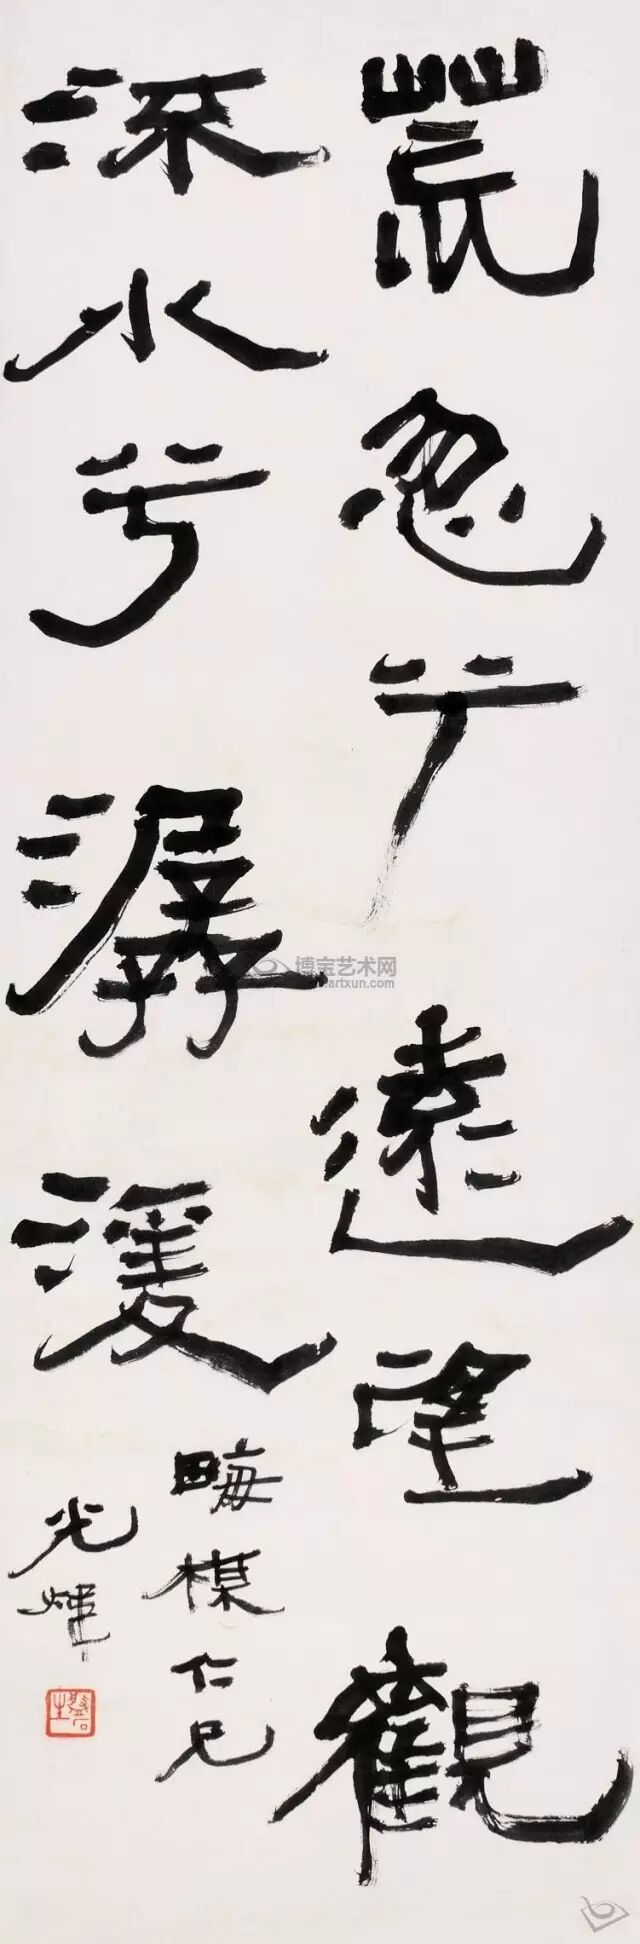 荒忽兮遠望觀
流水兮潺湲
晦楳仁兄
光煒
博宝艺术网
artxun.com